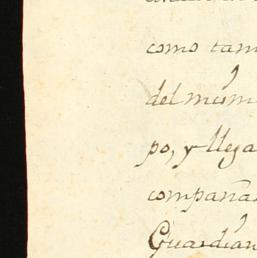 como tam
del mism
po, y llega
compañan
Guardian